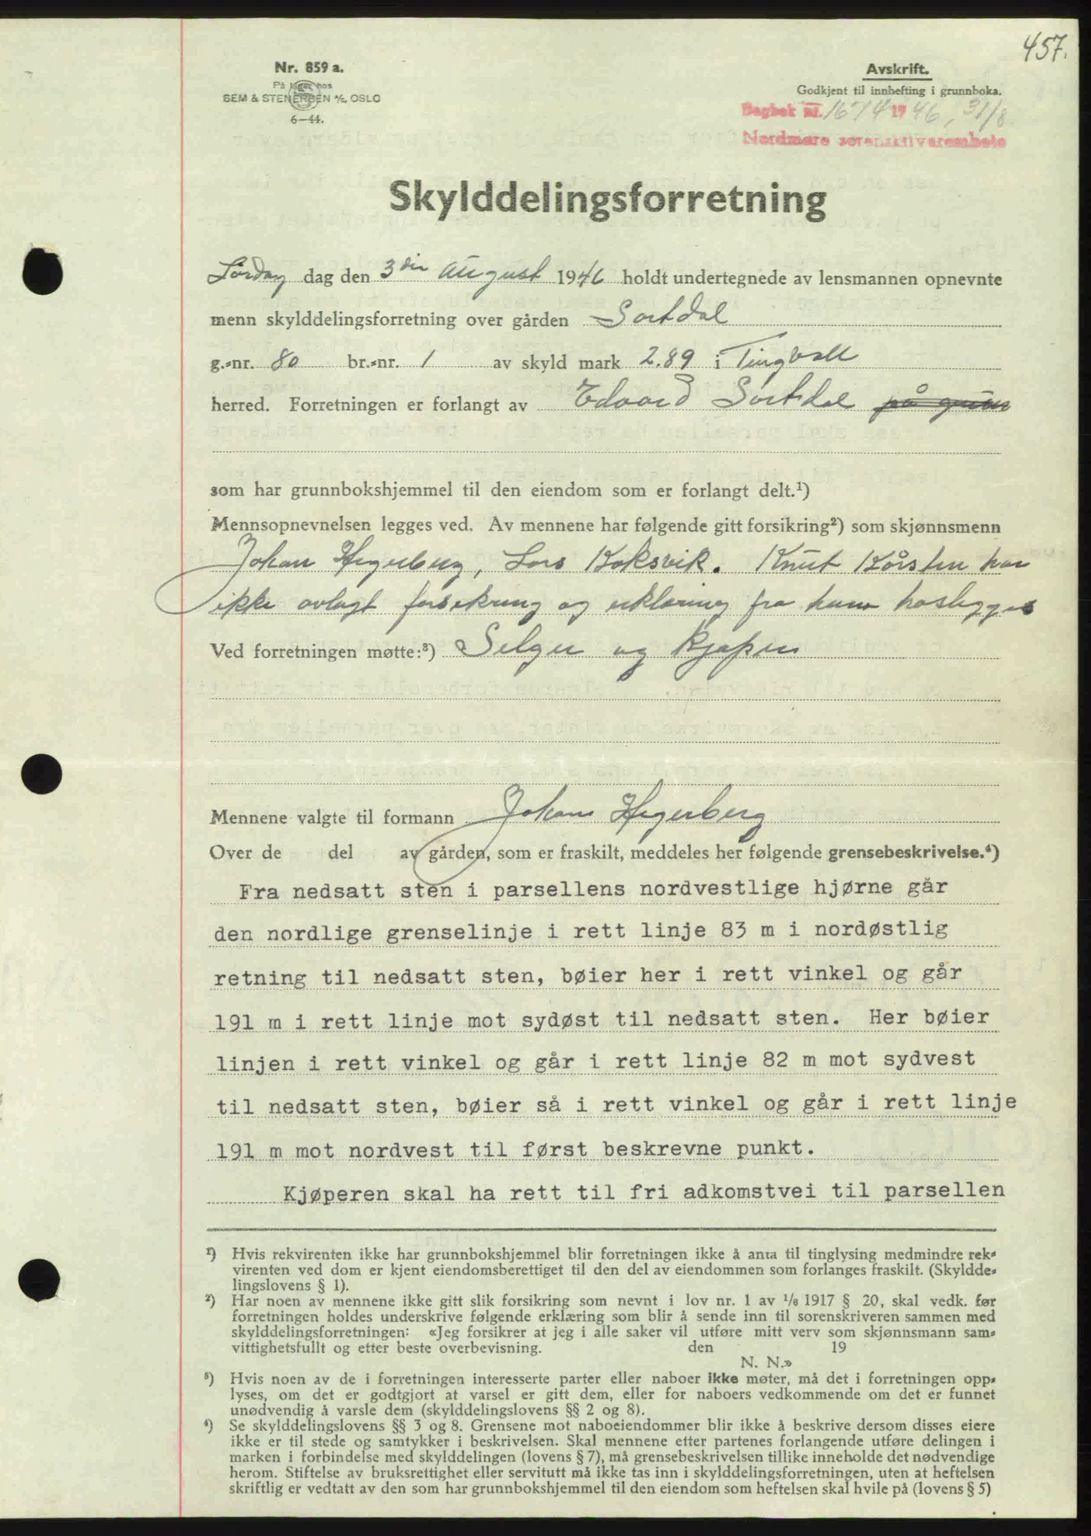 457.
Nr. 859 a.
På lager hos
SEM & STENERSEN A/S, OSLO
6-44.
Avskrift.
Godkjent til innhefting i grunnboka.
Dagbok nr. 1674 1946, 31/8
Nordmøre sorenskriverembete
Skylddelingsforretning
Lørdag dag den 3die august 1946 holdt undertegnede av lensmannen opnevnte
menn skylddelingsforretning over gården Sortdal
g.-nr. 80 br.-nr. 1 av skyld mark 2.89 i Tingvoll
herred. Forretningen er forlangt av Edvard Sortdal
som har grunnbokshjemmel til den eiendom som er forlangt delt.¹)
Mennsopnevnelsen legges ved. Av mennene har følgende gitt forsikring²) som skjønnsmenn
Johan Hegerberg, Lars Boksvik. Knut Kårsten har
ikke avlagt forsikring og erklæring fra ham hoslegges
Ved forretningen møtte:³) Selger og kjøper
Mennene valgte til formann Johan Hegerberg
Over de del av gården, som er fraskilt, meddeles her følgende grensebeskrivelse.⁴)
Fra nedsatt sten i parsellens nordvestlige hjørne går
den nordlige grenselinje i rett linje 83 m i nordøstlig
retning til nedsatt sten, bøier her i rett vinkel og går
191 m i rett linje mot sydøst til nedsatt sten. Her bøier
linjen i rett vinkel og går i rett linje 82 m mot sydvest
til nedsatt sten, bøier så i rett vinkel og går i rett linje
191 m mot nordvest til først beskrevne punkt.
Kjøperen skal ha rett til fri adkomstvei til parsellen
¹) Hvis rekvirenten ikke har grunnbokshjemmel blir forretningen ikke å anta til tinglysing medmindre rek-
virenten ved dom er kjent eiendomsberettiget til den del av eiendommen som forlanges fraskilt. (Skyldde-
lingslovens § 1).
²) Har noen av mennene ikke gitt slik forsikring som nevnt i lov nr. 1 av 1/6 1917 § 20, skal vedk. før
forretningen holdes underskrive følgende erklæring som blir å sende inn til sorenskriveren sammen med
skylddelingsforretningen: «Jeg forsikrer at jeg i alle saker vil utføre mitt verv som skjønnsmann sam-
vittighetsfullt og etter beste overbevisning. den 19
N. N.»
³) Hvis noen av de i forretningen interesserte parter eller naboer ikke møter, må det i forretningen opp-
lyses, om det er godtgjort at varsel er gitt dem, eller for naboers vedkommende om det er funnet
unødvendig å varsle dem (skylddelingslovens §§ 2 og 8).
⁴) Se skylddelingslovens §§ 3 og 8. Grensene mot naboeiendommer blir ikke å beskrive dersom disses eiere
ikke er til stede og samtykker i beskrivelsen. Skal mennene etter partenes forlangende utføre delingen i
marken i forbindelse med skylddelingen (lovens § 7), må grensebeskrivelsen tillike inneholde det nødvendige
herom. Stiftelse av bruksrettighet eller servitutt må ikke tas inn i skylddelingsforretningen, uten at heftelsen
skriftlig er vedtatt av den som har grunnbokshjemmel til den eiendom som heftelsen skal hvile på (lovens § 5)